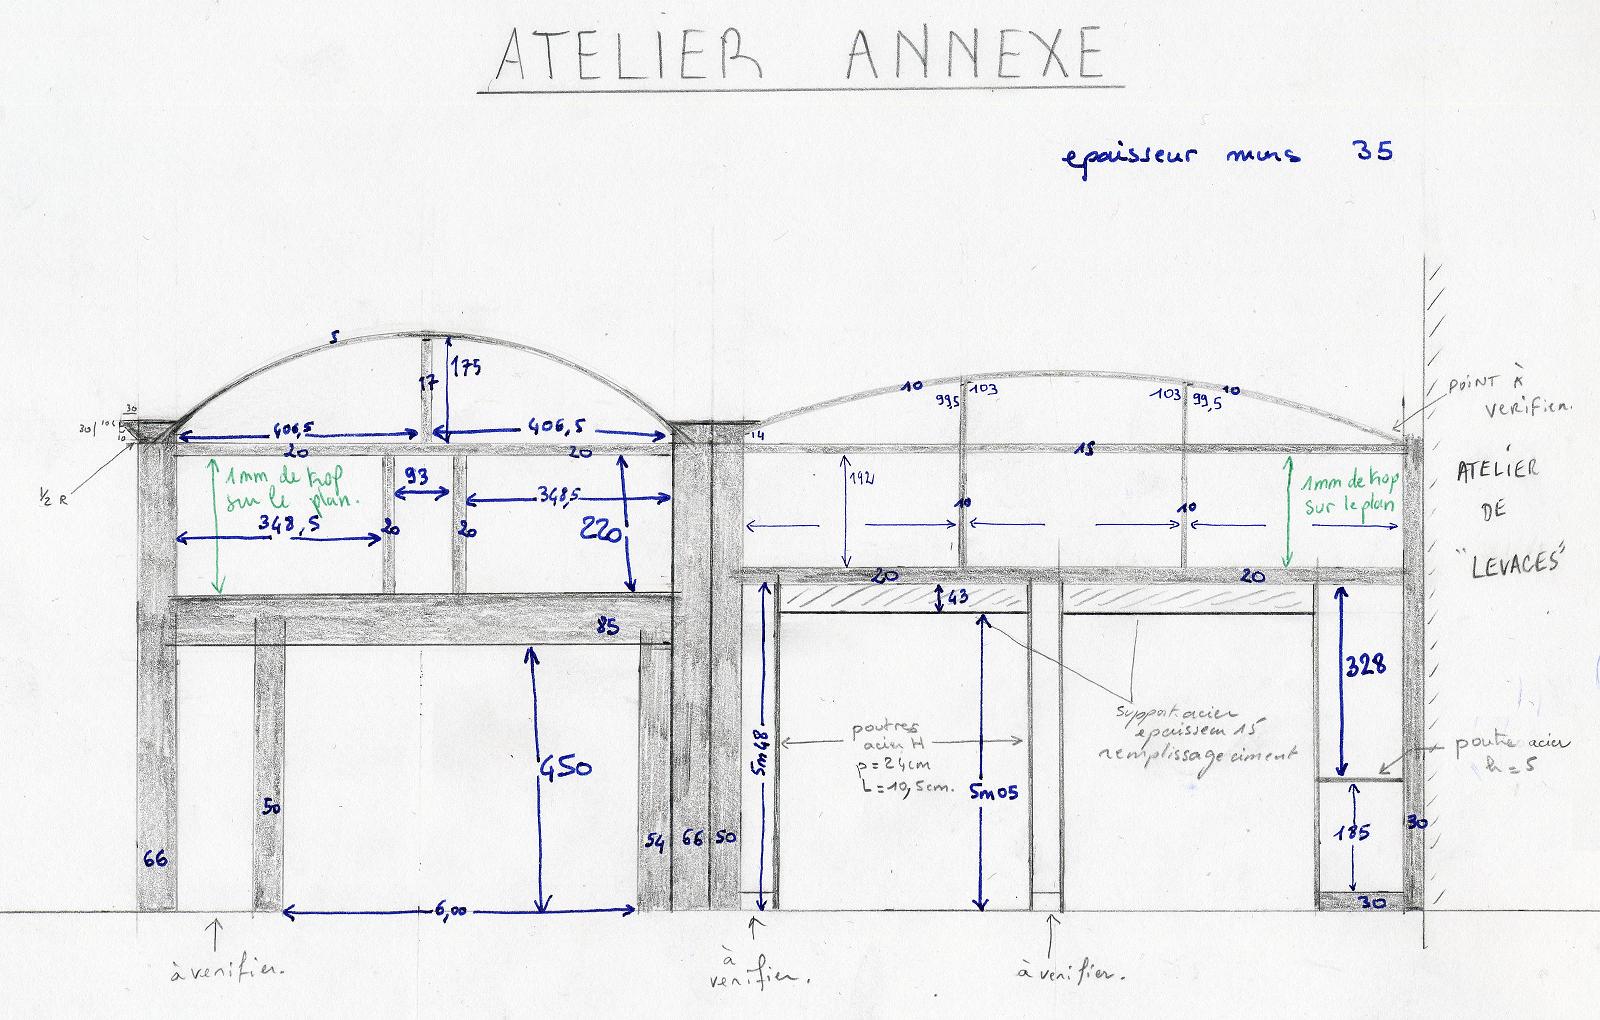 ATELIER ANNEXE
epaisseur murs 35
5
17
175
406,5
406,5
20
20
30
30
10
1/2 R
1mm de trop
sur le plan.
93
348,5
348,5
20
20
220
85
450
50
66
6,00
54
66
50
à verifier.
10
99,5
103
103
99,5
10
14
15
POINT À
VERIFIER.
192
10
10
1mm de trop
sur le plan
ATELIER
DE
"LEVAGES"
20
20
43
5m48
poutres
acier H
p=24cm
L=10,5cm.
5m05
support acier
epaisseur 15
remplissage ciment
328
poutre acier
h=5
185
30
30
à
verifier.
à verifier.